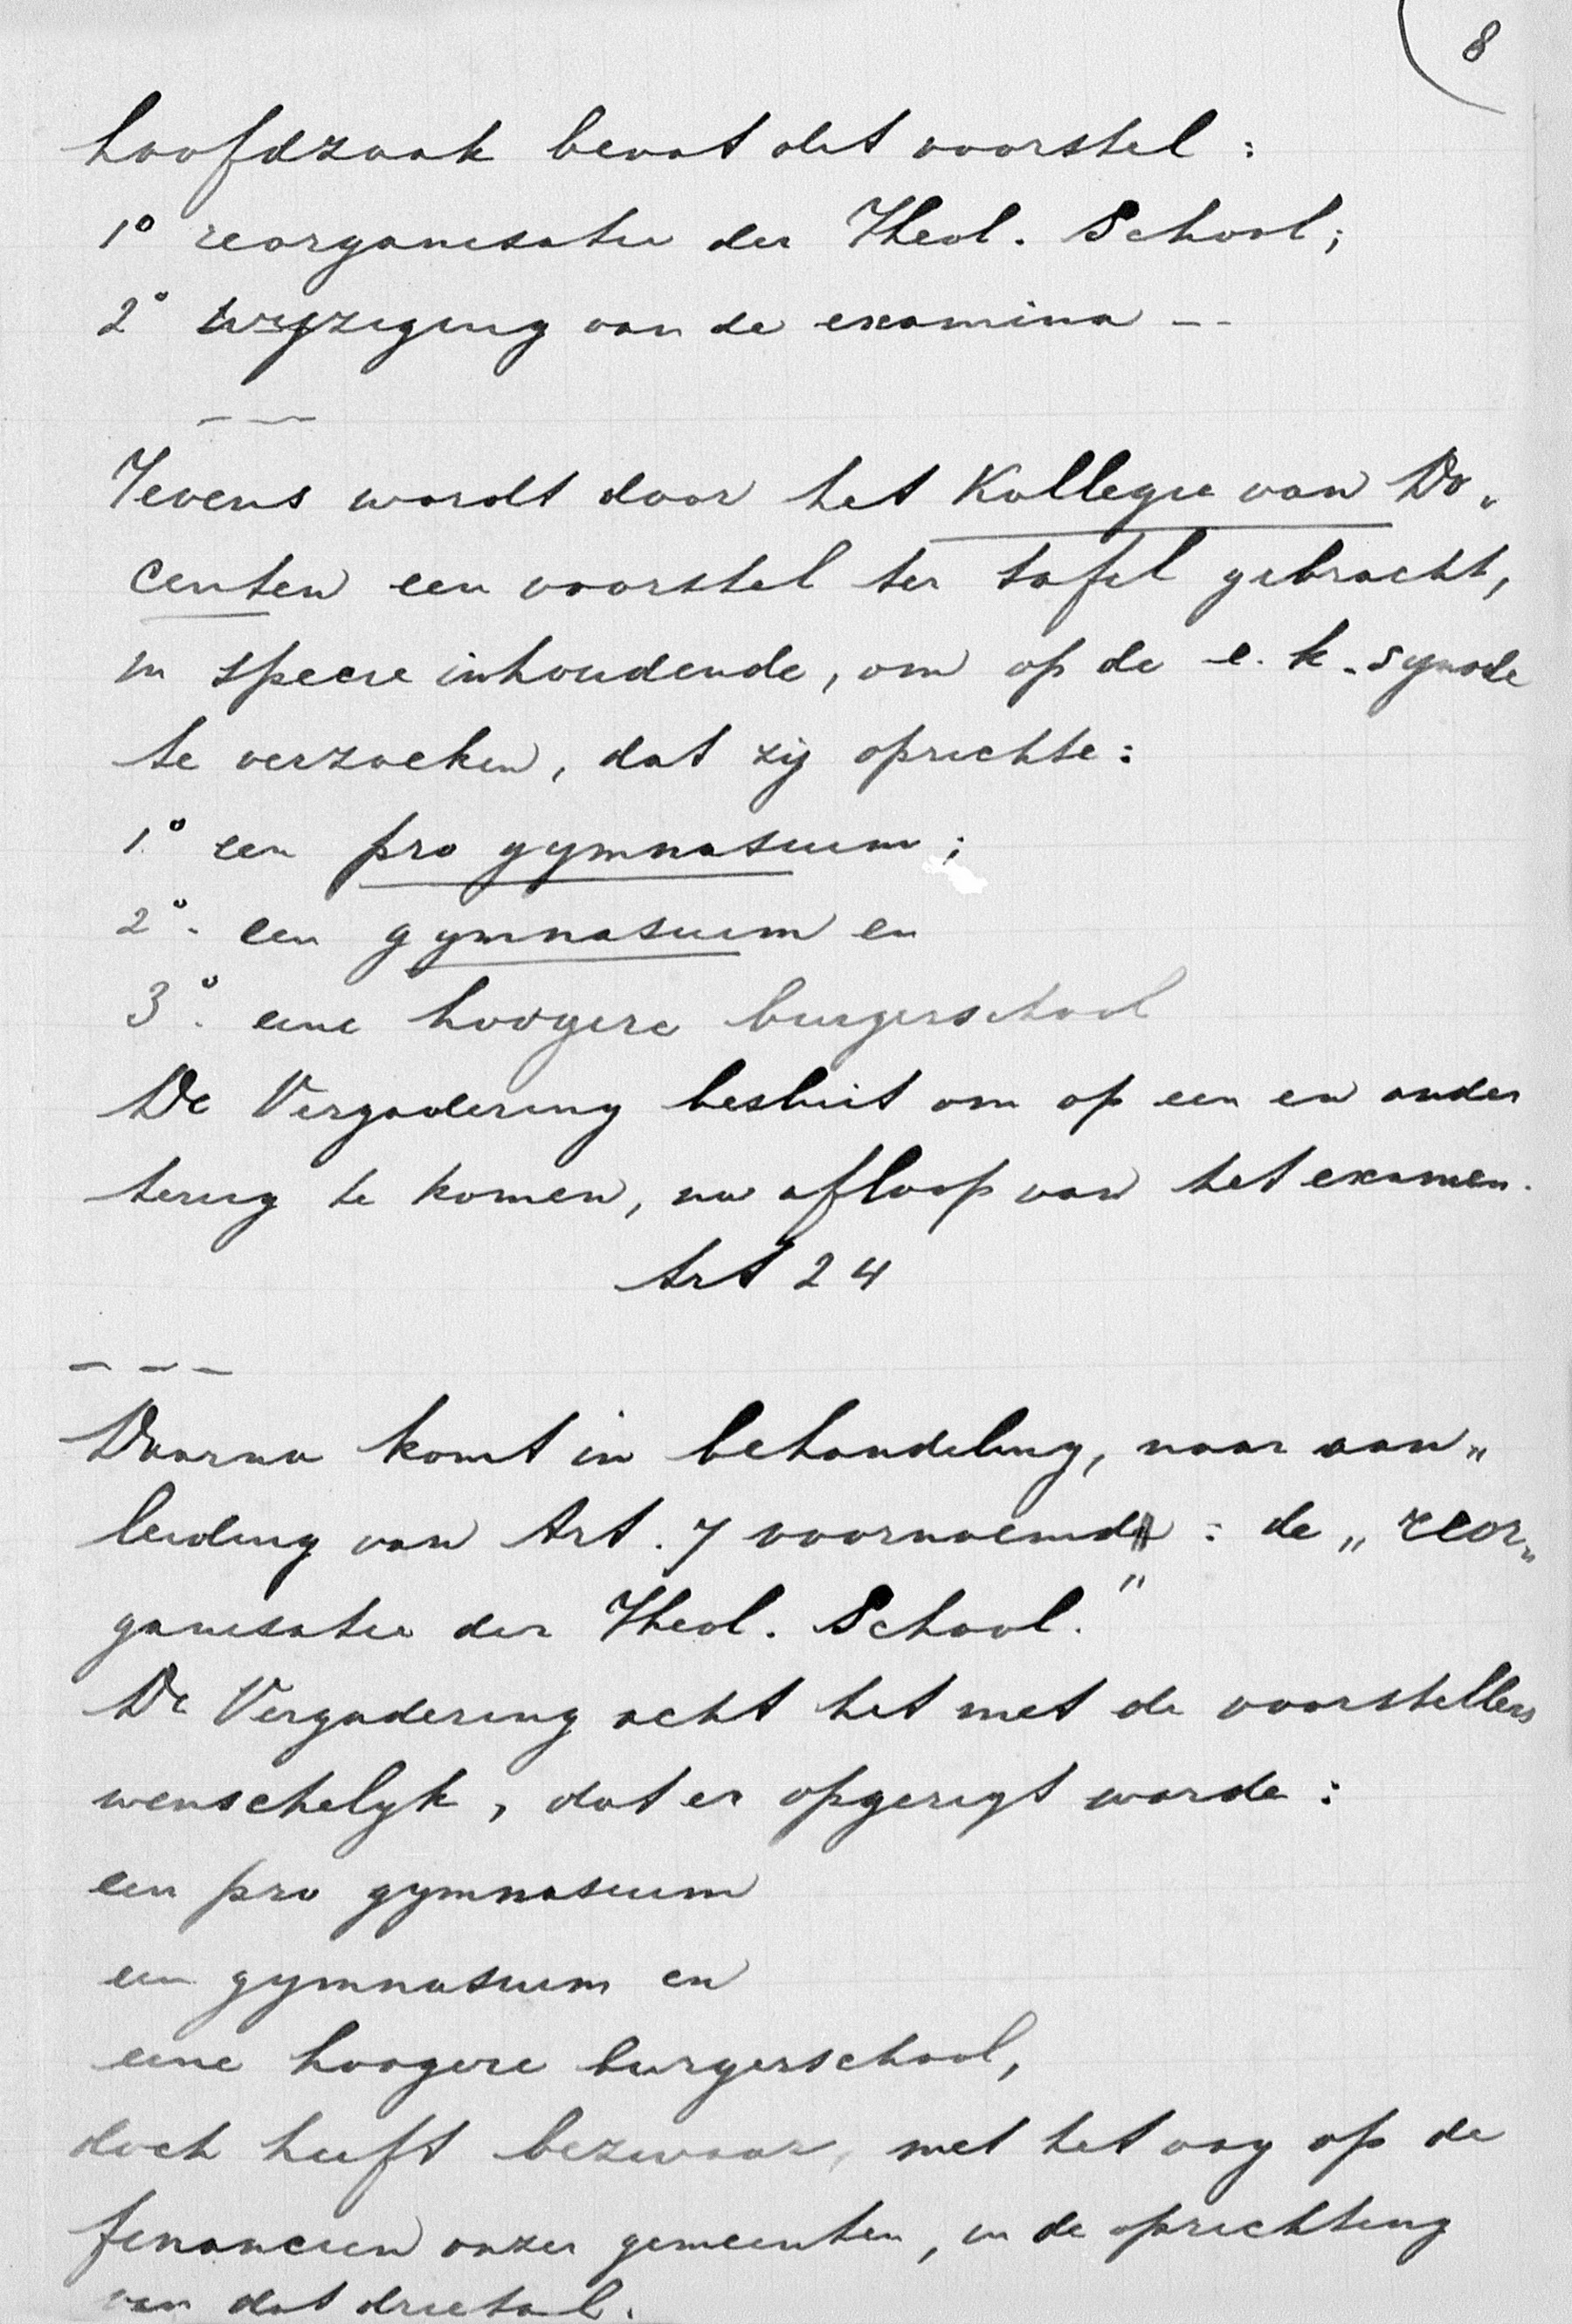 8
hoofdzaak bevat dit voorstel :
1º reorganisatie der Theol. School;
2º wyziging van de examina --
- --
Tevens wordt door het Kollegie van Do„
centen een voorstel ter tafel gebracht,
in specie inhoudende, om op de e. k. synode
te verzoeken, dat zij oprichte:
1º een pro gymnasium;
2º. een gymnasium en
3º. eene hoogere burgerschool
De Vergadering besluit om op een en ander
terug te komen, na afloop van het examen.
Art 24
- - -
Daarna komt in behandeling, naar aan„
leiding van Art. 7 voornoemd : de „ reor„
ganisatie der Theol. School."
De Vergadering acht het met de voorstellers
wenschelyk, dat er opgerigt worde :
een pro gymnasium
een gymnasium en
eene hoogere burgerschool,
doch heeft bezwaar, met het oog op de
financien onzer gemeenten, in de oprichting
van dat drietal.